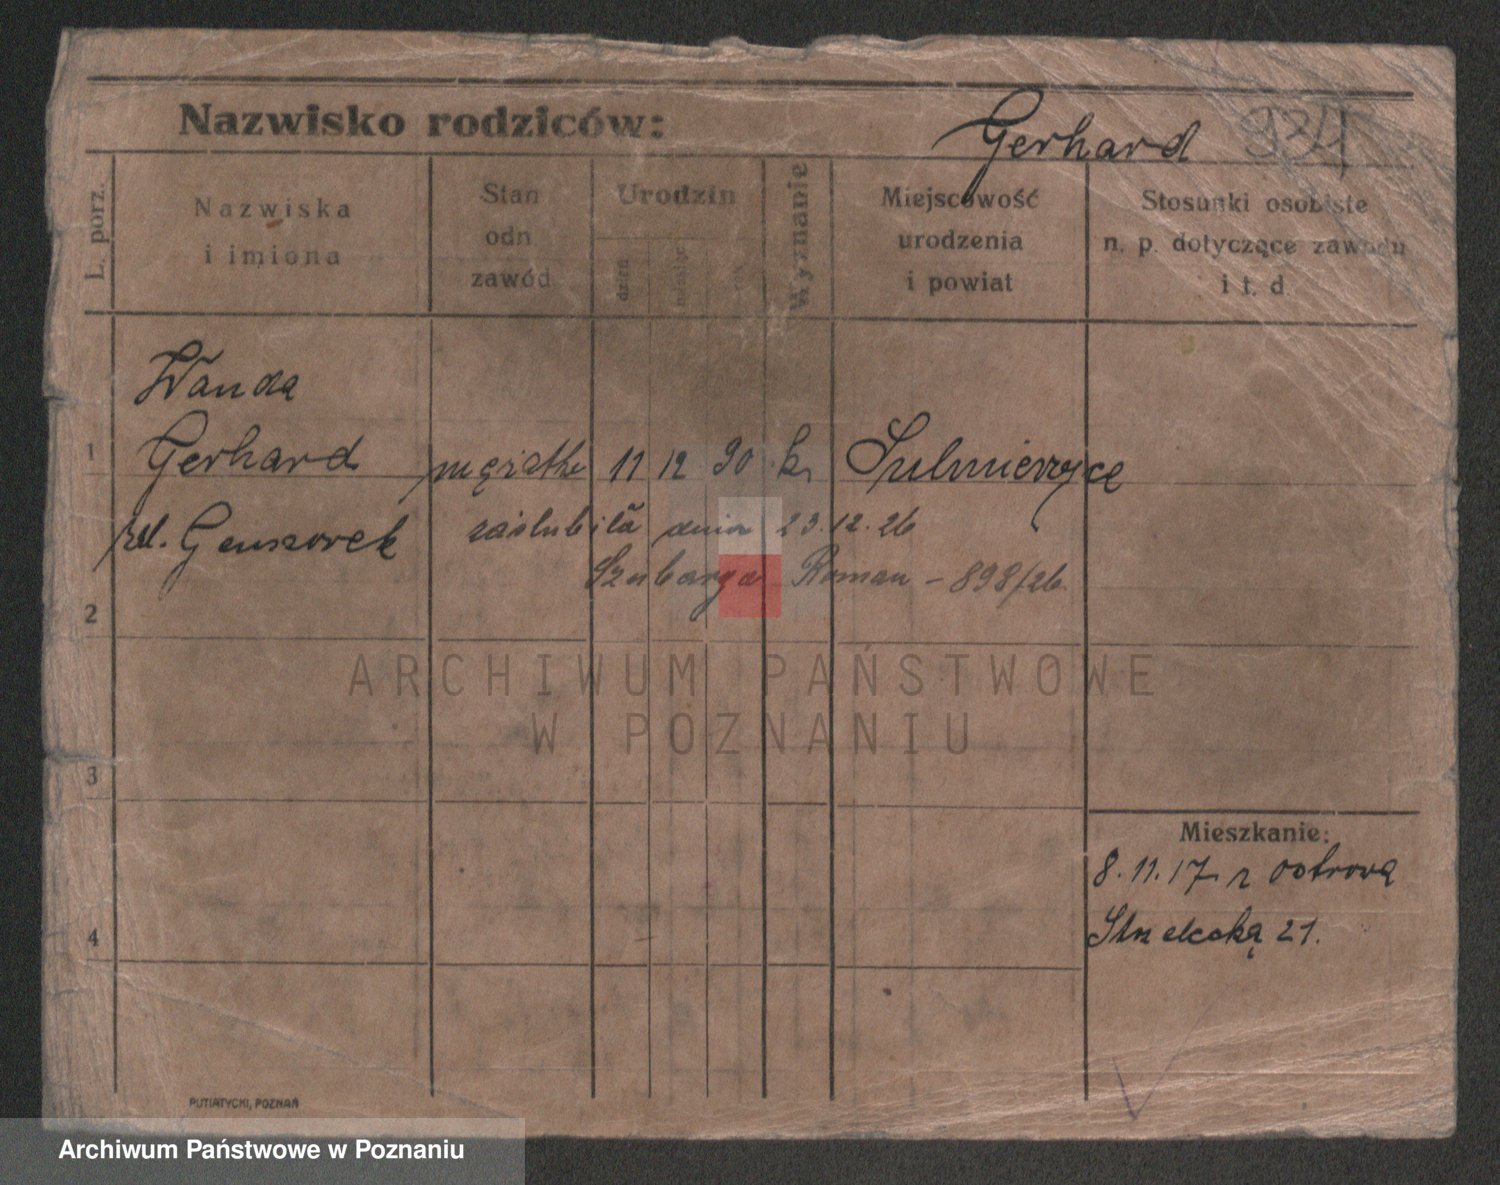 Nazwisko rodziców: Gerhard 934
L. porz.
Nazwiska
i imiona
Stan
odn
zawód
Urodzin
dzień
miesiąc
rok
Wyznanie
Miejscowość
urodzenia
i powiat
Stosunki osobiste
n. p. dotyczące zawodu
i t. d.
Wanda
1 Gerhard mężatka 11 12 90 k. Sulmierzyce
zaślubiła dnia 23.12.26
Szubarga Roman - 898/26
2
ARCHIWUM PAŃSTWOWE
W POZNANIU
3
Mieszkanie:
8.11.17 z Ostrowa
4 Strzelecka 21.
PUTIATYCKI, POZNAŃ
Archiwum Państwowe w Poznaniu